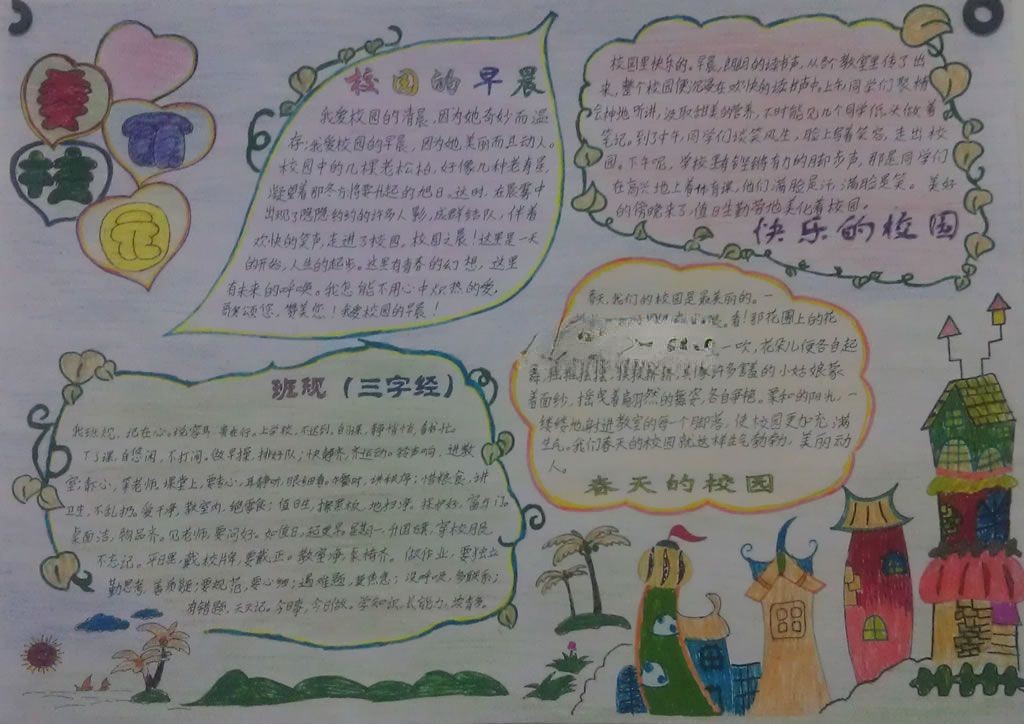 美
丽
校
园
校园的早晨
我爱校园的清晨,因为她奇妙而温
存;我爱校园的早晨,因为她美丽而且动人。
校园中的几棵老松柏,好像几种老寿星,
凝望着那冬方将要升起的旭日。这时,在晨雾中
出现了隐隐约约的许多人影,成群结队,伴着
欢快的笑声,走进了校园。校园之晨!这里是一天
的开始,人生的起步。这里有青春的幻想,这里
有未来的呼唤。我怎能不用心中炽热的爱,
歌颂您,赞美您!我爱校园的早晨!
校园里快乐的。早晨,朗朗的读书声,从各个教室里传了出
来,整个校园便沉浸在欢快的读书声中。上午,同学们聚精
会神地听讲,汲取甜美的营养,不时能见几个同学低头做着
笔记。到了中午,同学们谈笑风生,脸上写着笑容,走出校
园。下午呢,学校里有铿锵有力的脚步声,那是同学们
在高兴地上着体育课,他们满脸是汗,满脸是笑。美好
的傍晚来了,值日生勤劳地美化着校园。
快乐的校园
春天,我们的校园是最美丽的。一
看!那花圃上的花
一吹,花朵儿便各自起
舞,摇摇摆摆,挨挨挤挤,真像许多害羞的小姑娘蒙
着面纱,摇曳着自然的舞姿,各自争艳。柔和的阳光,一
缕缕地射进教室的每一个脚落,使校园更加充满
生气。我们春天的校园就这样生气勃勃,美丽动
人。
春天的校园
班规(三字经)
我班规,记在心。说容易,贵在行。上学校,不迟到。自习课,静悄悄,
下了课,自悠闲,不打闹。做早操,排好队;快静齐,齐运动。铃声响,进教
室;静心,等老师。课堂上,要专心,耳静听,眼细看。用餐时,讲秩序;惜粮食,讲
卫生,不乱扔。爱干净,教室内,绝零食;值日生,擦黑板,地扫净,
桌面洁,物品齐。见老师,要问好。星期一,升国旗,穿校服,
不忘记。平日里,戴校牌,要戴正。做作业,要独立,
勤思考,善质疑;要规范,要心细;遇难题,莫焦急;没呼唤,多联系;
有错题,天天记。今日事,今日做。学知识,长能力,